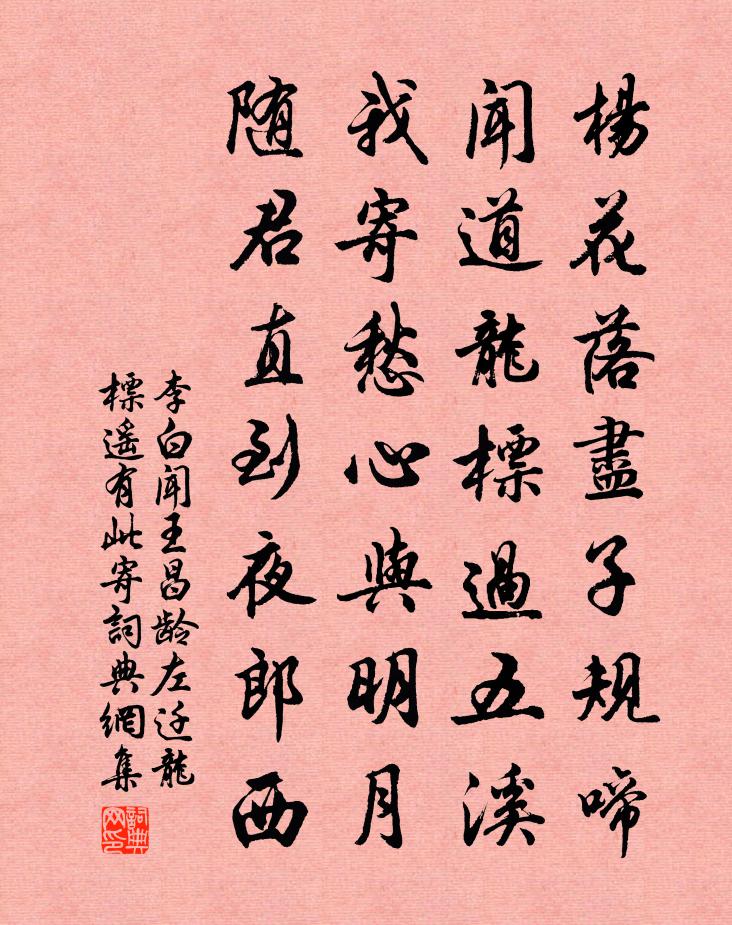 楊花落盡子規啼
聞道龍標過五溪
我寄愁心與明月
随君直到夜郎西
李白闻王昌龄左迁龍
標遥有此寄詞典網集
詞典
网印